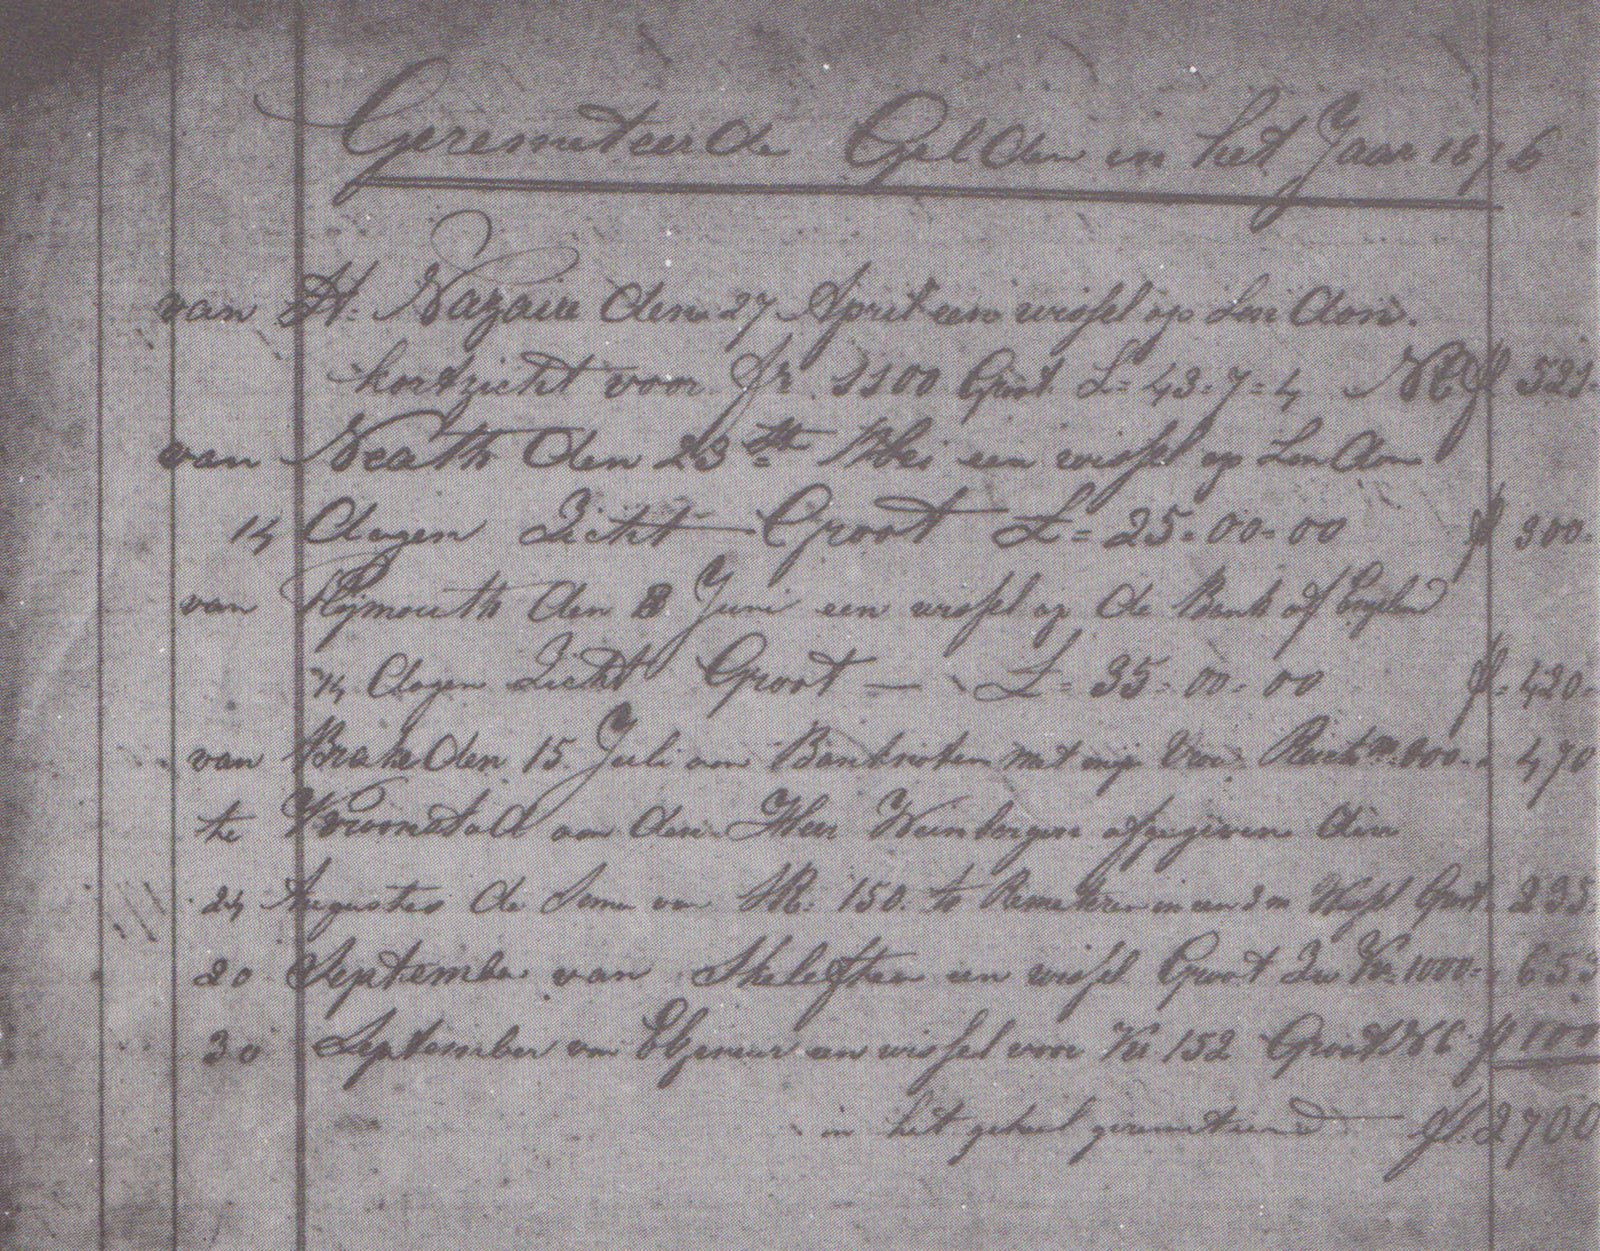 Geremeteerde Gelden in het Jaar 1876
van St. Nazaire den 27 April een wissel op London.
kortzicht voor fr. 1100 Groot £ = 43 = 7 = 4 Nl f 521-
van Neath den 23ste Mei een wissel op London
14 dagen Zicht - Groot £ = 25 = 00 = 00 f 300 =
van Plijmouth den 8 Juni een wissel op de Bank of England
14 dagen Zicht Groot — £ = 35 = 00 = 00 f = 420 =
van Brake den 15 Juli aan Banknoten met mijn Vrou 470
te Kroonstad aan den Heer afgegeven den
24 Augustus de Som van 150 te Remeteren in een 3 m Wissel Groot 235
20 September van Skeleftea een wissel Groot Zw Kr 1000 = 653
30 September van een wissel voor Kr 152 Groot f 100
in het geheel geremeteerd fl. 2700